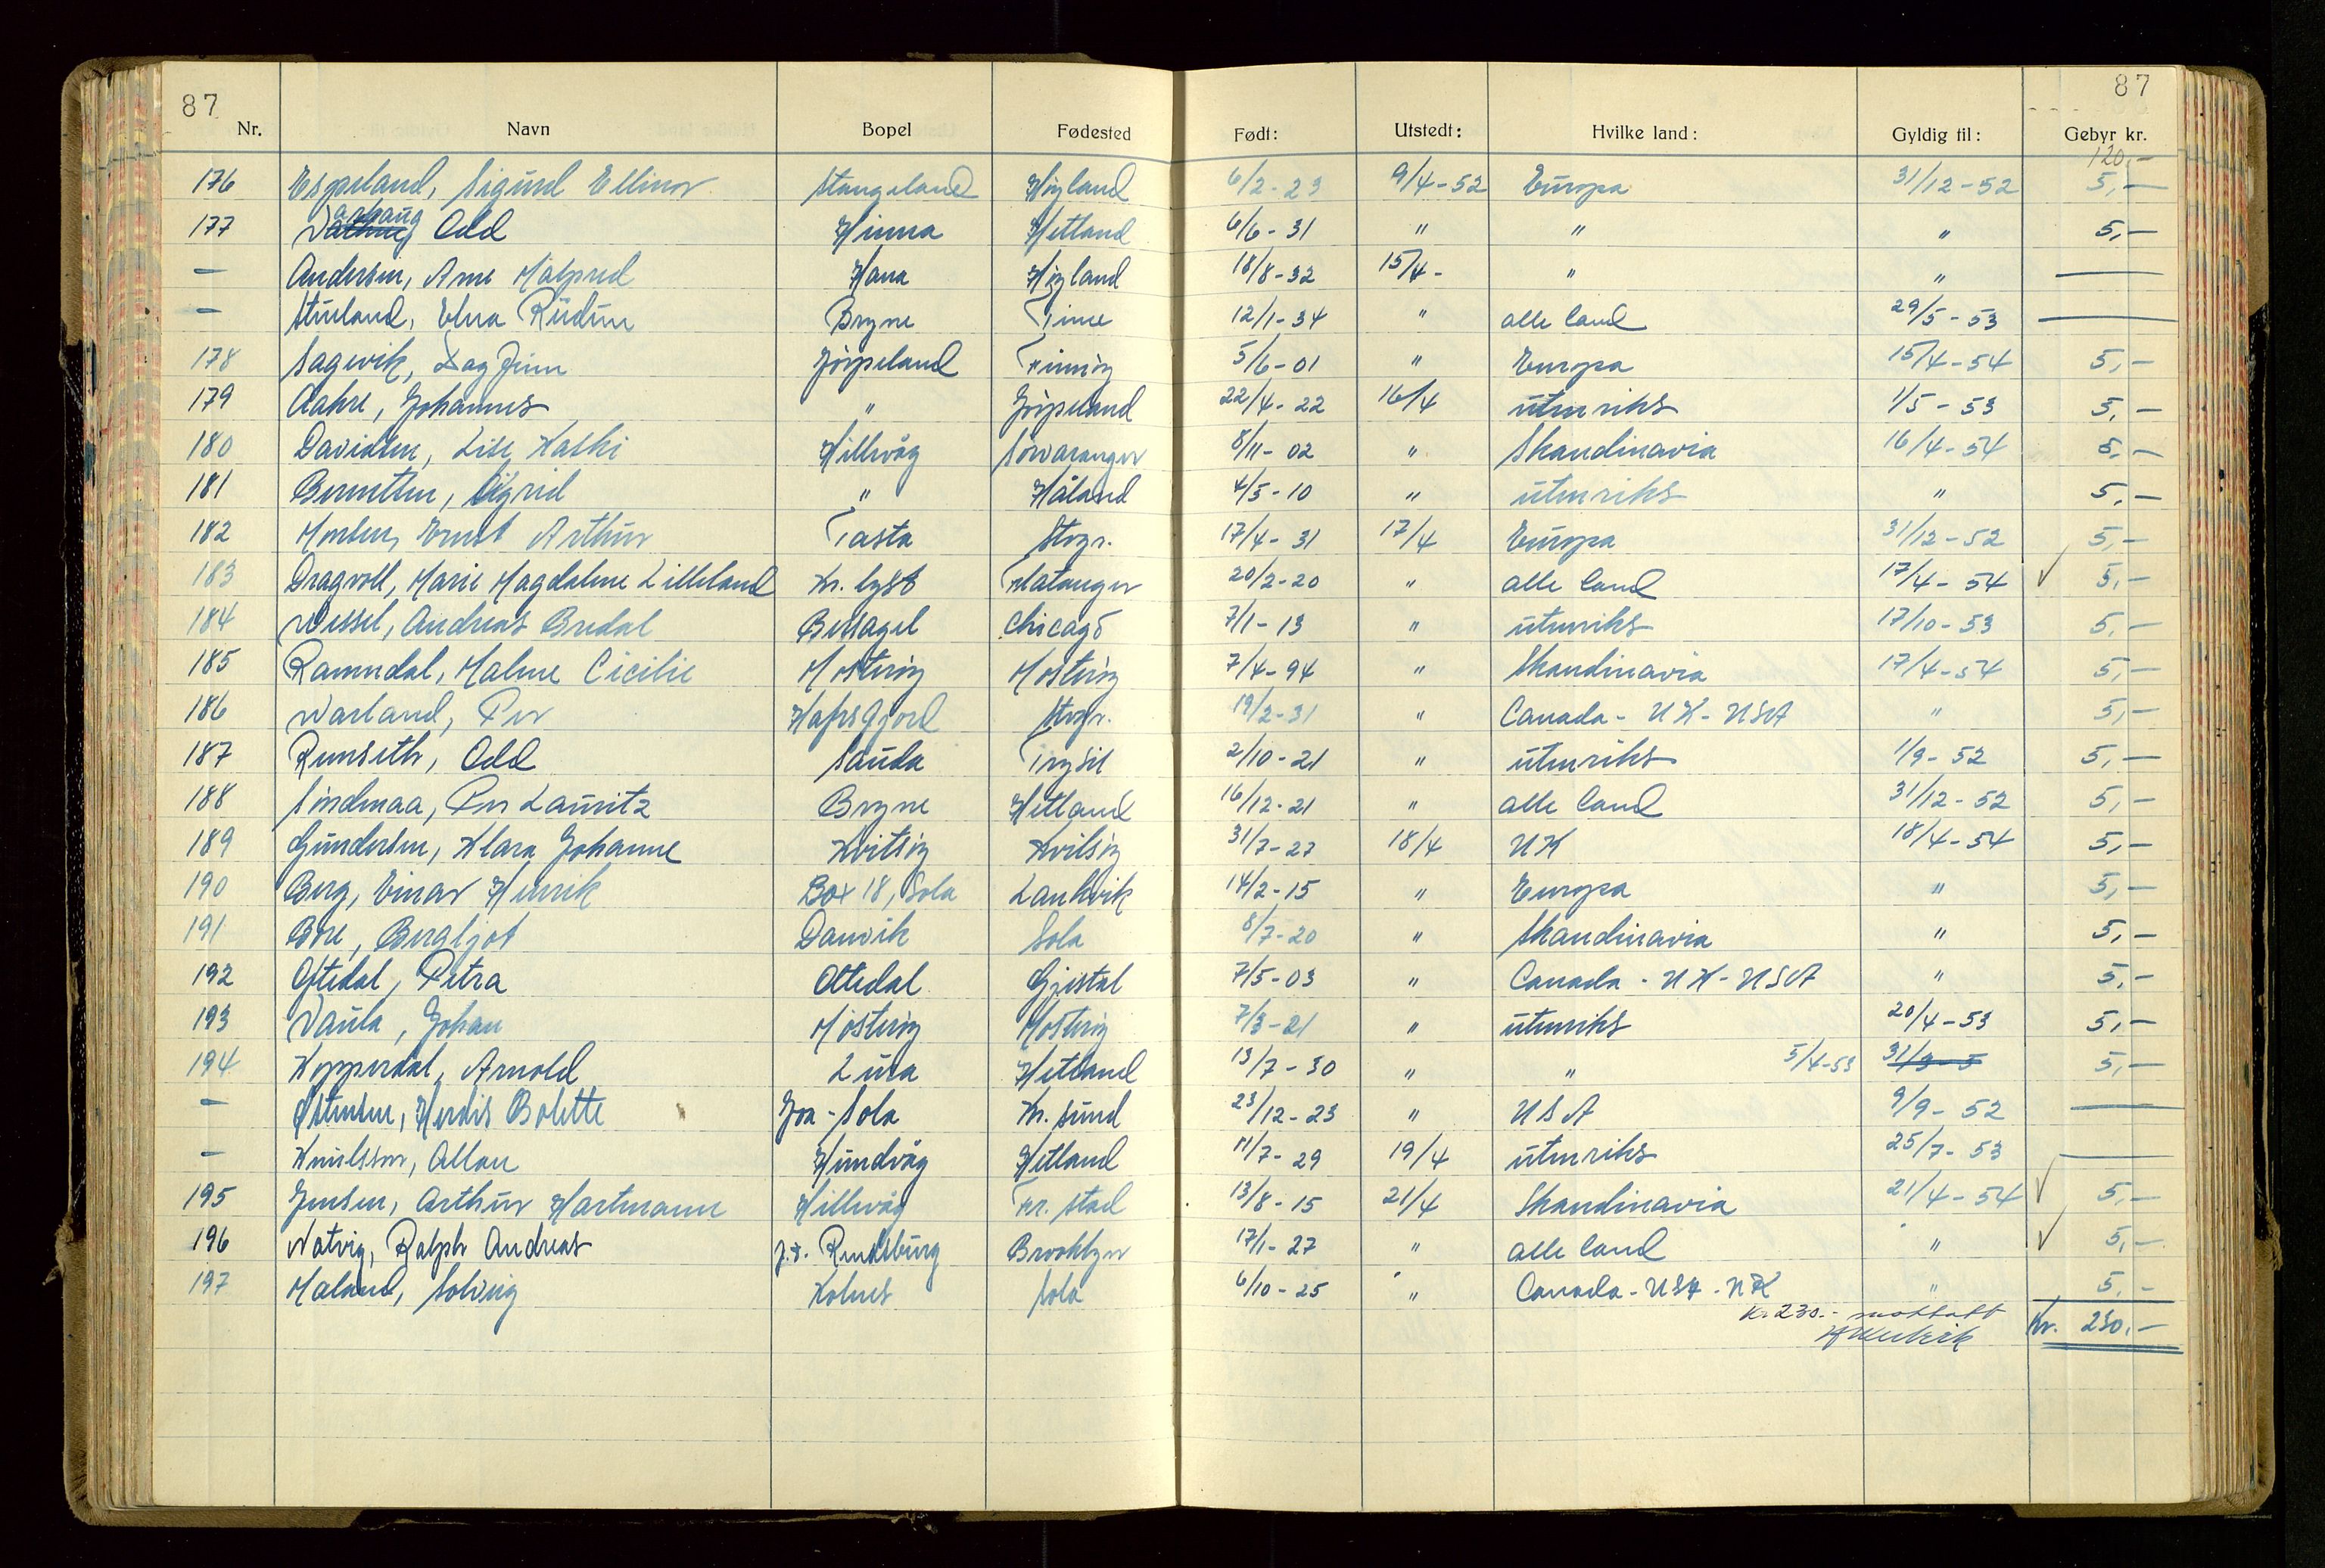 87 87
Nr. Navn Bopel Fødested Født: Utstedt: Hvilke land: Gyldig til: Gebyr kr.
120,-
176 Espeland, Sigurd Ellinor Stangeland Høyland 6/2-23 9/4-52 Europa 31/12-52 5,-
177 Varhaug Odd Hinna Hetland 6/6-31 " " " 5,-
— Andersen, Arne Malfred Hana Høyland 18/8-32 15/4- " " —
— Stueland, Elna Rudine Bryne Time 12/1-34 " alle land 29/5-53 —
178 Sagevik, Dag Finn Jørpeland Finnøy 5/6-01 " Europa 15/4-54 5,-
179 Aahre, Johannes " Jørpeland 22/4-22 16/4 utenriks 1/5-53 5,-
180 Davidsen, Lise Kaski Hillevåg Sørvaranger 8/11-02 " Skandinavia 16/4-54 5,-
181 Berntsen, Sigrid " Håland 4/5-10 " utenriks " 5,-
182 Ernst Arthur Tasta Stvgr. 17/4-31 17/4 Europa 31/12-52 5,-
183 Dragvoll, Marie Magdalene Lilleland Kr. lyst Matanger 20/2-20 " alle land 17/4-54 ✓ 5,-
184 Wessel, Andreas Bredal Bersagel Chicago 7/1-13 " utenriks 17/10-53 5,-
185 Ramndal, Malene Cicilie Mosterøy Mosterøy 7/4-94 " Skandinavia 17/4-54 5,-
186 Warland, Per Hafrsfjord Stvgr. 19/2-31 " Canada - UK - USA " 5,-
187 Runseth, Odd Sauda Trysil 2/10-21 " utenriks 1/9-52 5,-
188 Sindmaa, Per Lauritz Bryne Hetland 16/12-21 " alle land 31/12-52 5,-
189 Gundersen, Klara Johanne Kvitsøy Kvitsøy 31/7-27 18/4 UK 18/4-54 5,-
190 Berg, Einar Henrik Box 18, Sola Lankvik 14/2-15 " Europa " 5,-
191 Bore, Bergljot Danvik Sola 8/7-20 " Skandinavia " 5,-
192 Oftedal, Petra Oltedal Gjestal 7/5-03 " Canada - UK - USA " 5,-
193 Vaula, Johan Mosterøy Mosterøy 7/3-21 " utenriks 20/4-53 5,-
194 Kopperdal, Arnold Lura Hetland 13/7-30 " " 5/4-53 31/3-5 5,-
— Østensen, Herdis Bolette Joa - Sola Kr. sund 23/12-23 " USA 9/9-52 —
— Knudsson, Allan Hundvåg Hetland 11/7-29 19/4 utenriks 25/7-53 —
195 Jensen, Arthur Hartmann Hillevåg Fr. stad 13/8-15 21/4 Skandinavia 21/4-54 ✓ 5,-
196 Natvig, Ralph Andreas p.t. Rendsburg Brooklyn 17/1-27 " alle land " ✓ 5,-
197 Maland, Solveig Kolnes Sola 6/10-25 " Canada - USA - UK " 5,-
Kr 230.- mottatt Kr. 230,-